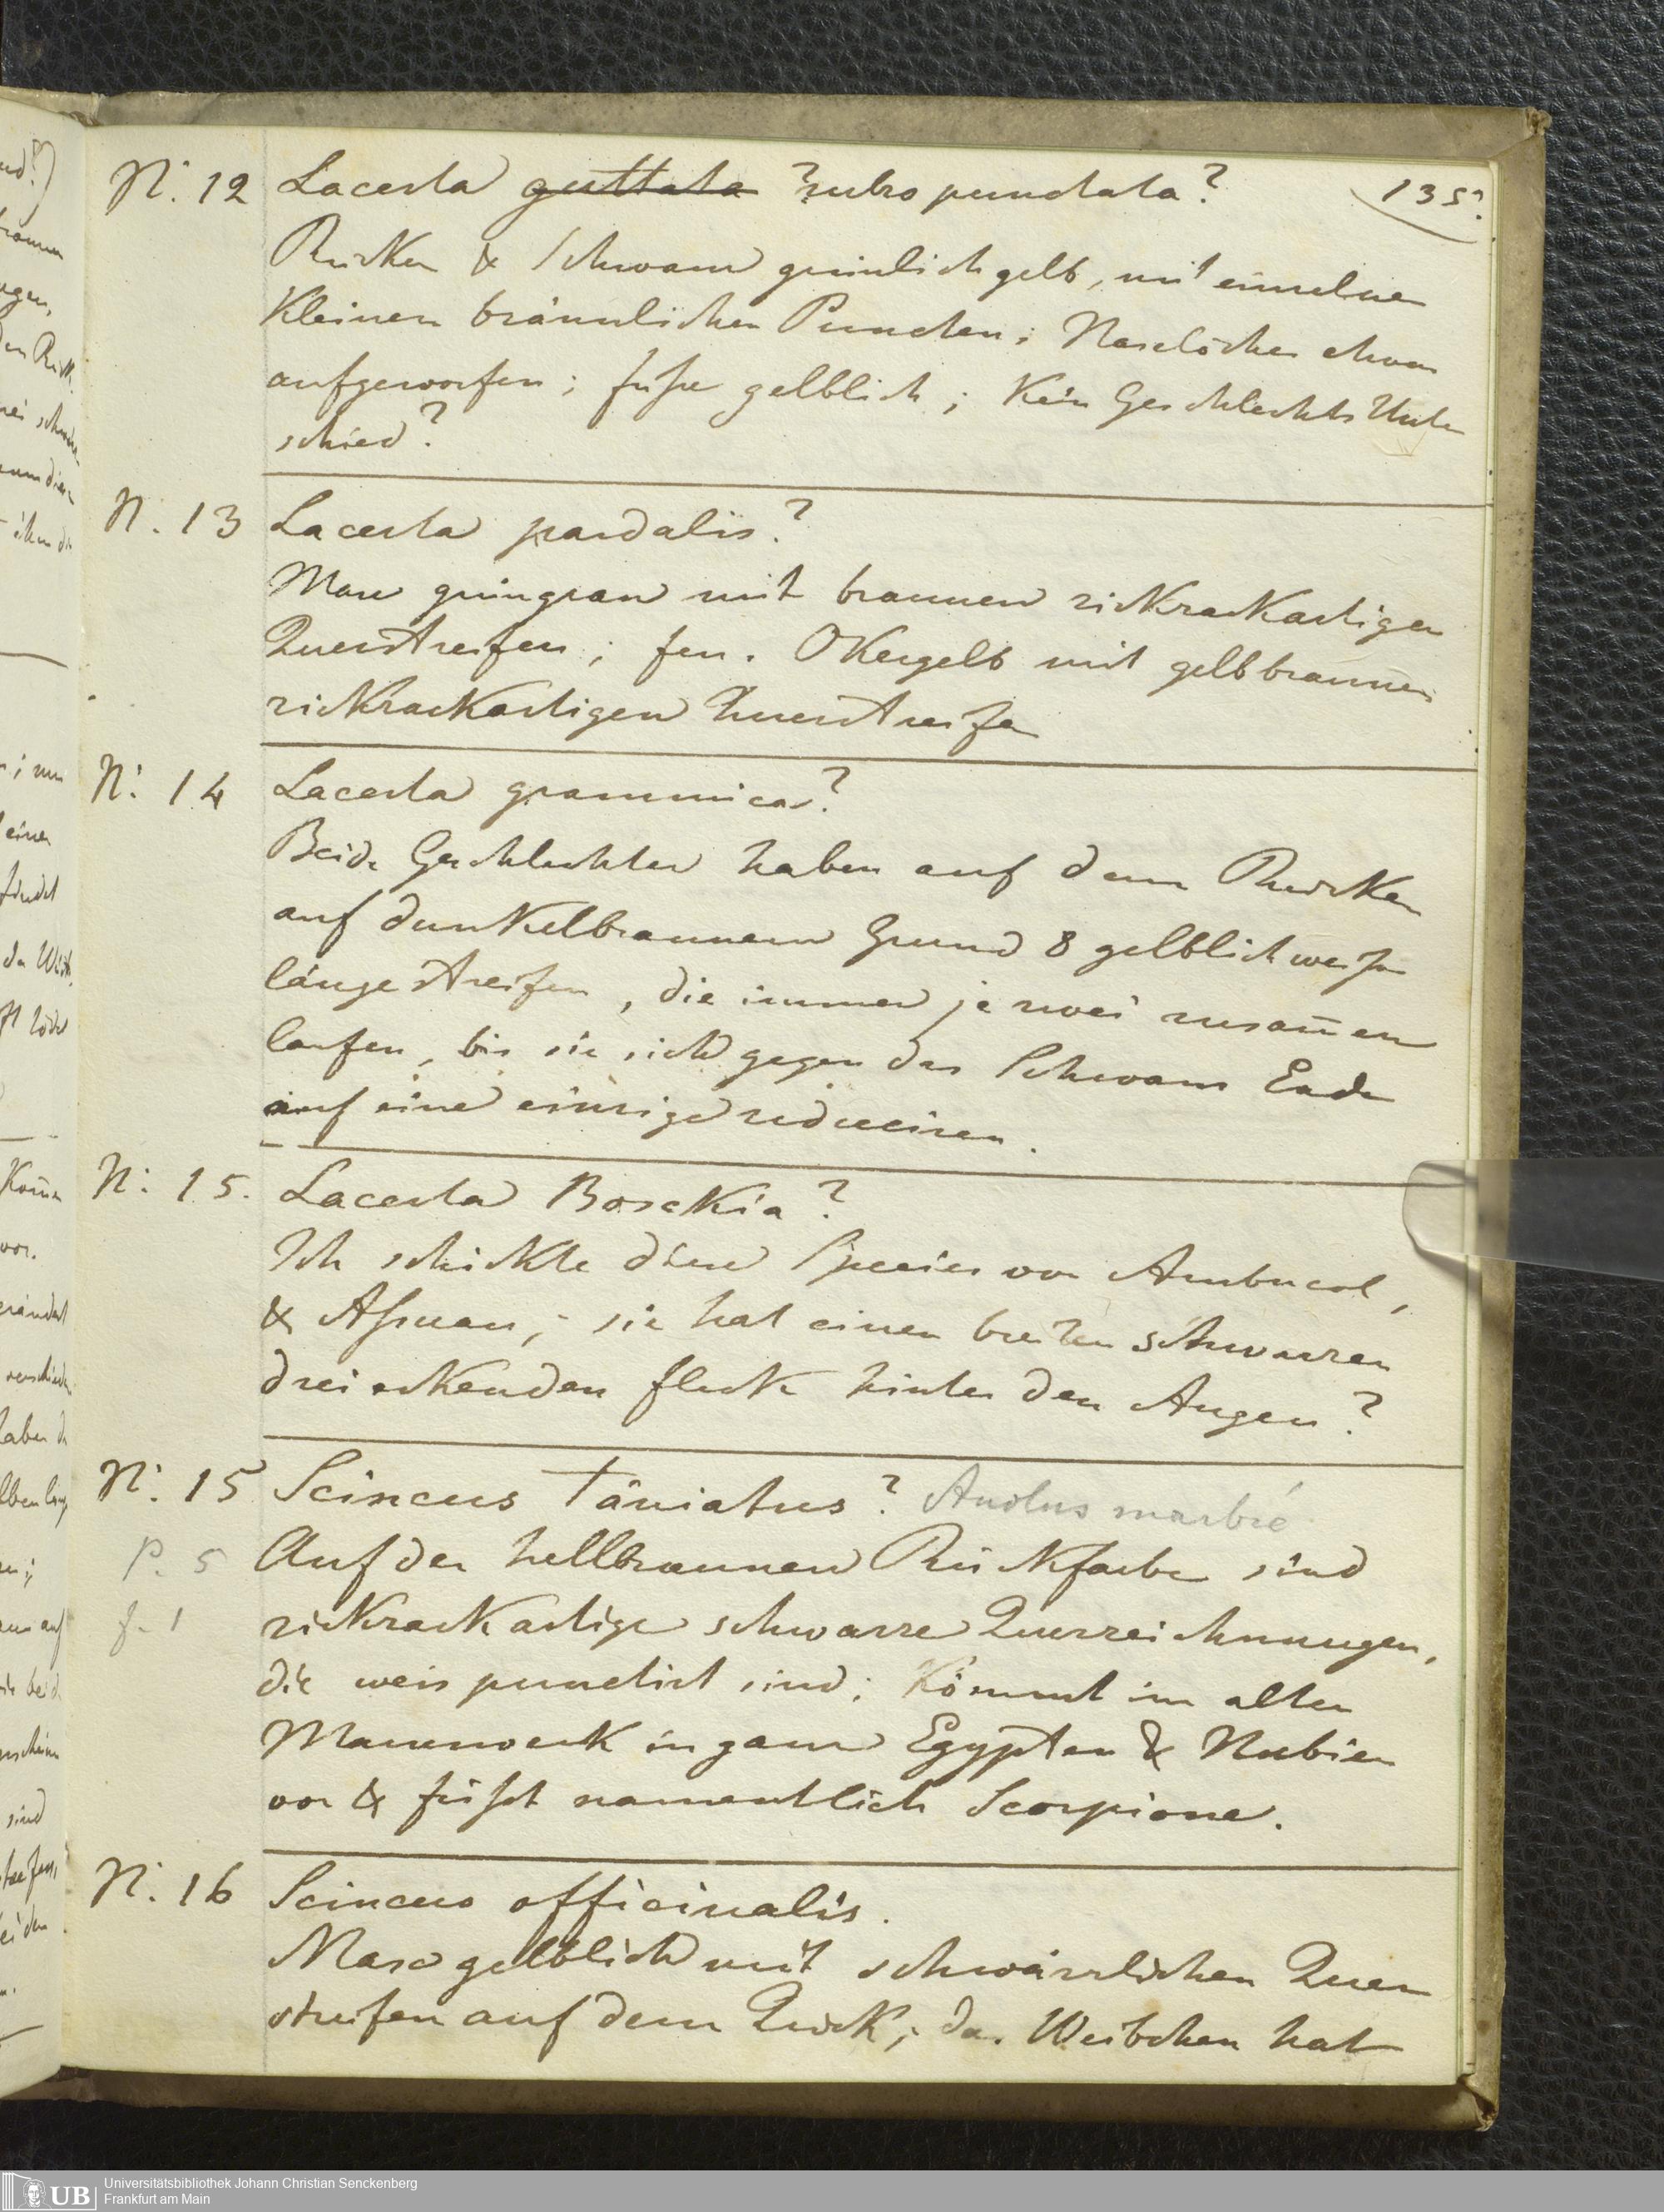 135.
N. 12 Lacerta guttata ? rubro punctata?
Rücken & Schwanz grünlich gelb, mit einzelnen
kleinen bräunlichen Puncten; Naselöcher etwas
aufgeworfen; füße gelblich; Kein Geschlechts Unter
schied?
N. 13 Lacerta pardalis?
Mase grüngrau mit braunen zickzackartigen
Querstreifen; fem. Okergelb mit gelbbraunen
zickzackartigen Querstreifen
N. 14 Lacerta grammica?
Beide Geschlechter haben auf dem Rücken
auf dunkelbraunem Grund 8 gelblichweiße
längestreifen, die immer je zwei zusam̄en
laufen, bis sie sich gegen das Schwanz Ende
auf eine einzige reduciren.
N. 15. Lacerta Boskia?
Ich schickte diese Species von Ambucol,
& Aſsuan; sie hat einen breiten schwarzen
dreieckenden fleck hinter den Augen?
N. 15 Scincus täniatus? Anolus marbré
P. 5 Auf der hellbraunen Rückfarbe sind
f. 1 zickzackartige schwarze Querzeichnungen,
die weis punctirt sind; Kömmt im alten
Mauerwerk in ganz Egypten & Nubien
vor & frißt namentlich Scorpione.
N. 16 Scincus officinalis.
Masc gelblich mit schwärzlichen Quer
streifen auf dem Rück; das Weibchen hat
Universitätsbibliothek Johann Christian Senckenberg
UB Frankfurt am Main